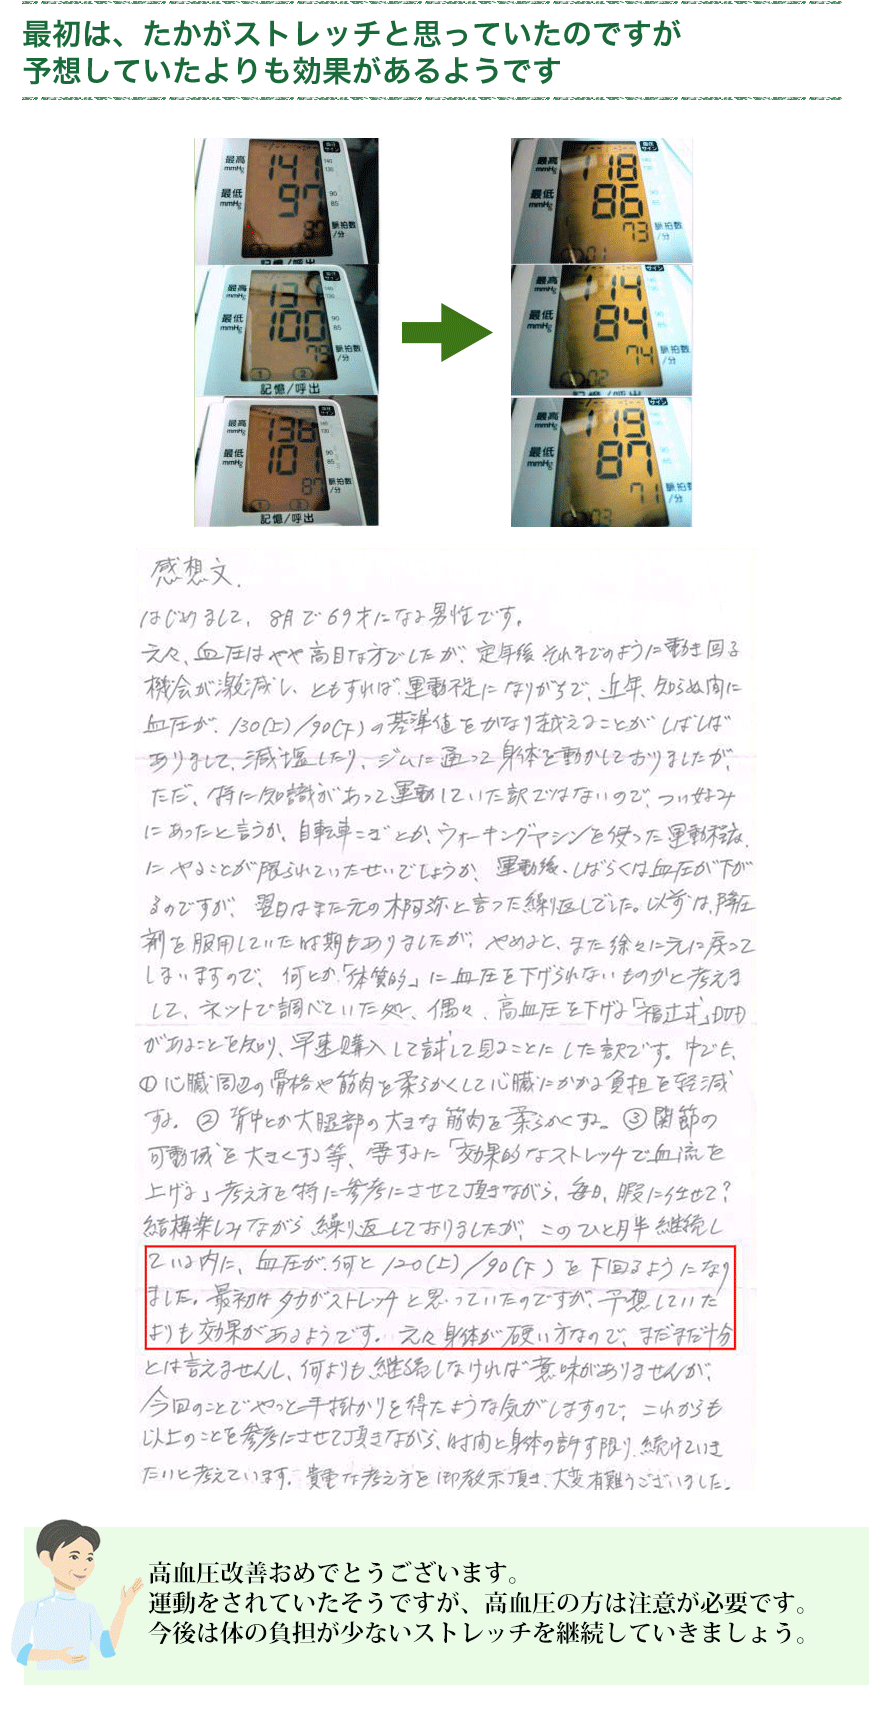 最初は、たかがストレッチと思っていたのですが
予想していたよりも効果があるようです
最高
mmHg
141
140
130
最低
mmHg
97
90
85
87
脈拍数
/分
最高
mmHg
131
最低
mmHg
100
90
85
79
脈拍数
/分
1 2
記憶/呼出
最高
mmHg
136
130
最低
mmHg
101
90
85
87
脈拍数
/分
記憶/呼出
血圧
サイン
最高
mmHg
118
140
130
最低
mmHg
86
90
85
73
脈拍数
/分
01
サイン
最高
mmHg
114
最低
mmHg
84
90
85
74
脈拍数
/分
02
サイン
最高
mmHg
119
最低
mmHg
87
90
85
71
脈拍数
/分
03
感想文.
はじめまして、8月で69才になる男性です。
元々、血圧はやや高目な方でしたが、定年後それまでのように動き回る
機会が激減し、ともすれば、運動不足になりがちで、近年、知らぬ間に
血圧が、130(上)/90(下)の基準値をかなり越えることがしばしば
ありまして、減塩したり、ジムに通って身体を動かしておりましたが、
ただ、特に知識があって運動していた訳ではないので、つい好み
にあったと言うか、自転車こぎとか、ウォーキングマシンを使った運動程度、
にやることが限られていたせいでしょうか、運動後、しばらくは血圧が下が
るのですが、翌日はまた元の木阿弥と言った繰り返しでした。以前は、降圧
剤を服用していた時期もありましたが、やめると、また徐々に元に戻って
しまいますので、何とか「体質的」に血圧を下げられないものかと考えま
して、ネットで調べていた処、偶々、高血圧を下げる「福辻式」DVD
があることを知り、早速購入して試して見ることにした訳です。中でも、
①心臓周辺の骨格や筋肉を柔らかくして心臓にかかる負担を軽減
する。②背中とか大腿部の大きな筋肉を柔らかくする。③関節の
可動域を大きくする等、要するに「効果的なストレッチで血流を
上げる」考え方を特に参考にさせて頂きながら、毎日、暇に任せて?
結構楽しみながら繰り返しておりましたが、このひと月半継続し
ている内に、血圧が、何と120(上)/90(下)を下回るようになり
ました。最初はタカがストレッチと思っていたのですが、予想していた
よりも効果があるようです。元々身体が硬い方なので、まだまだ十分
とは言えませんし、何よりも継続しなければ意味がありませんが、
今回のことでやっと手掛かりを得たような気がしますので、これからも
以上のことを参考にさせて頂きながら、時間と身体の許す限り、続けていき
たいと考えています。貴重な考え方を御教示頂き、大変有難うございました。
高血圧改善おめでとうございます。
運動をされていたそうですが、高血圧の方は注意が必要です。
今後は体の負担が少ないストレッチを継続していきましょう。